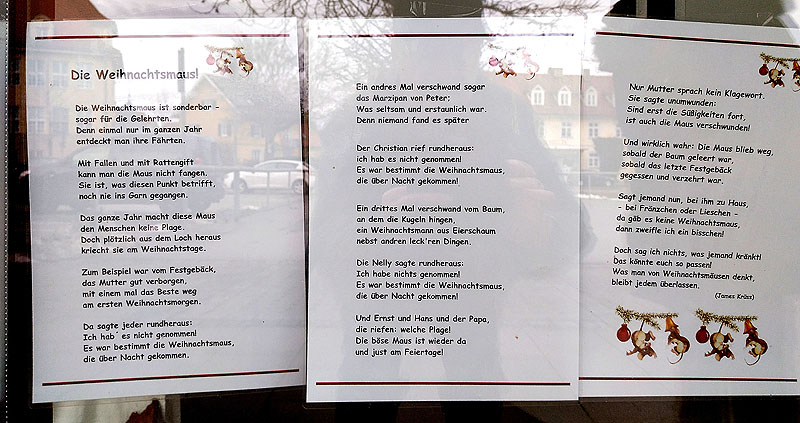 Die Weihnachtsmaus!
Die Weihnachtsmaus ist sonderbar –
sogar für die Gelehrten.
Denn einmal nur im ganzen Jahr
entdeckt man ihre Fährten.
Mit Fallen und mit Rattengift
kann man die Maus nicht fangen.
Sie ist, was diesen Punkt betrifft,
noch nie ins Garn gegangen.
Das ganze Jahr macht diese Maus
den Menschen keine Plage.
Doch plötzlich aus dem Loch heraus
kriecht sie am Weihnachtstage.
Zum Beispiel war vom Festgebäck,
das Mutter gut verborgen,
mit einem mal das Beste weg
am ersten Weihnachtsmorgen.
Da sagte jeder rundheraus:
Ich hab´ es nicht genommen!
Es war bestimmt die Weihnachtsmaus,
die über Nacht gekommen.
Ein andres Mal verschwand sogar
das Marzipan von Peter;
Was seltsam und erstaunlich war.
Denn niemand fand es später
Der Christian rief rundheraus:
ich hab es nicht genommen!
Es war bestimmt die Weihnachtsmaus,
die über Nacht gekommen!
Ein drittes Mal verschwand vom Baum,
an dem die Kugeln hingen,
ein Weihnachtsmann aus Eierschaum
nebst andren leck'ren Dingen.
Die Nelly sagte rundheraus:
Ich habe nichts genommen!
Es war bestimmt die Weihnachtsmaus,
die über Nacht gekommen!
Und Ernst und Hans und der Papa,
die riefen: welche Plage!
Die böse Maus ist wieder da
und just am Feiertage!
Nur Mutter sprach kein Klagewort.
Sie sagte unumwunden:
Sind erst die Süßigkeiten fort,
ist auch die Maus verschwunden!
Und wirklich wahr: Die Maus blieb weg,
sobald der Baum geleert war,
sobald das letzte Festgebäck
gegessen und verzehrt war.
Sagt jemand nun, bei ihm zu Haus,
– bei Fränzchen oder Lieschen –
da gäb es keine Weihnachtsmaus,
dann zweifle ich ein bisschen!
Doch sag ich nichts, was jemand kränkt!
Das könnte euch so passen!
Was man von Weihnachtsmäusen denkt,
bleibt jedem überlassen.
(James Krüss)